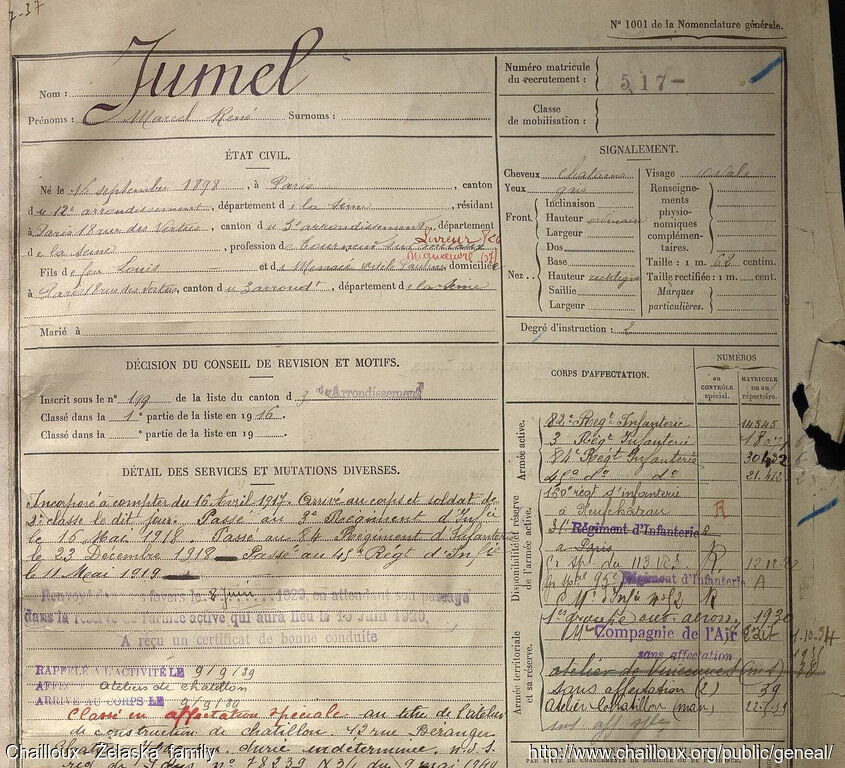 7-37
N° 1001 de la Nomenclature générale.
Nom : Jumel
Prénoms : Marcel René Surnoms :
Numéro matricule du recrutement : 517-
Classe de mobilisation :
ÉTAT CIVIL.
Né le 16 septembre 1898, à Paris, canton
du 12e arrondissement, département de la Seine, résidant
à Paris 18 rue des Vertus, canton du 3e arrondissement, département
de la Seine, profession de sur métaux Livreur
Fils de feu Louis et de domiciliés
à Paris 18 rue des Vertus, canton du 3 arrondt, département de la Seine
Marié à
SIGNALEMENT.
Cheveux chatains Visage ovale
Yeux gris
Front. Inclinaison
Hauteur ordinaire
Largeur
Nez. Dos
Base
Hauteur rectiligne
Saillie
Largeur
Renseignements physionomiques complémentaires.
Taille : 1 m. 62 centim.
Taille rectifiée : 1 m. cent.
Marques particulières.
Degré d'instruction : 2
DÉCISION DU CONSEIL DE REVISION ET MOTIFS.
Inscrit sous le n° 199 de la liste du canton d 3 e Arrondissement
Classé dans la 1e partie de la liste en 1916.
Classé dans la ° partie de la liste en 19 .
DÉTAIL DES SERVICES ET MUTATIONS DIVERSES.
Incorporé à compter du 16 Avril 1917. Arrivé au corps et soldat de
2e classe le dit jour. Passé au 3e Régiment d'Infie
le 16 Mai 1918. Passé au 84 Régiment d'Infanterie
le 23 Décembre 1918 — Passé au 45e Régt d'Infie
le 11 Mai 1919
Renvoyé dans ses foyers le 8 juin 1920 en attendant son passage
dans la réserve de l'armée active qui aura lieu le 15 Juin 1920.
A reçu un certificat de bonne conduite
RAPPELÉ A L'ACTIVITÉ LE 9/9/39
AFFECTÉ ateliers de chatillon
ARRIVÉ AU CORPS LE 9/9/39
Classé en affectation spéciale au titre de l'atelier
de construction de chatillon. 42 rue Beranger
durée indeterminée.
n° 78239 9 mai 1940
CORPS D'AFFECTATION.
NUMÉROS
au CONTRÔLE spécial.
MATRICULE ou au répertoire.
Armée active.
82e Régt Infanterie 14545
3 Régt Infanterie
84e Régt Infanterie
45e do do
Disponibilité et réserve de l'armée active.
160e régt d'infanterie
à Neufchateau R
31e Régiment d'Infanterie
à Paris
95e Régiment d'Infanterie A
Armée territoriale et sa réserve.
1930
Compagnie de l'Air 1-10-34
sans affectation
atelier de Vincennes 38
sans affectation (2) 39
atelier chatillon (man)
Chailloux - Zelaska family
http://www.chailloux.org/public/geneal/